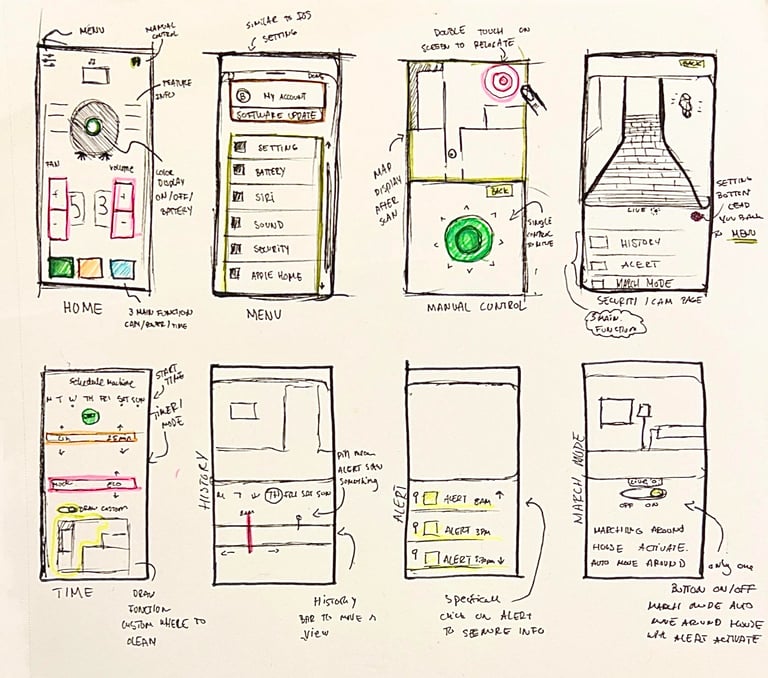 MENU
MANUAL CONTROL
FEATURE INFO
FAN
VOLUME
+
-
5
3
+
-
COLOR DISPLAY ON/OFF/ BATTERY
HOME
3 MAIN FUNCTION
CAM/POWER/TIME
SIMILAR TO IOS
SETTING
DONE
MY ACCOUNT
SOFTWARE UPDATE
SETTING
BATTERY
SIRI
SOUND
SECURITY
APPLE HOME
MENU
DOUBLE TOUCH ON
SCREEN TO RELOCATE
MAP
DISPLAY
AFTER
SCAN
BACK
SINGLE
CONTROL
TO MOVE
MANUAL CONTROL
BACK
LIVE
HISTORY
ALERT
MARCH MODE
SETTING
BOTTON
LEAD
YOU BACK
TO MENU
SECURITY / CAM PAGE
3 MAIN
FUNCTION
Schedule Machine
M T W TH FRI SAT SUN
START
TIME
TIMER/
MODE
DRAW CUSTOM
TIME
DRAW
FUNCTION
CUSTOM WHERE TO
CLEAN
HISTORY
TH FRI SAT SUN
8AM
PIN MEAN
ALERT SAW
Something
HISTORY
BAR TO MOVE N
View
ALERT
ALERT 8AM
ALERT 3PM
ALERT
CLICK ON ALERT
TO SEE MORE INFO
MARCH MODE
LIVE
OFF ON
MARCHING AROUND
HOUSE ACTIVATE.
AUTO MOVE AROUND
only one
BUTTON ON/OFF
MARCH MODE AUTO
MOVE AROUND HOUSE
WITH ALERT ACTIVATE